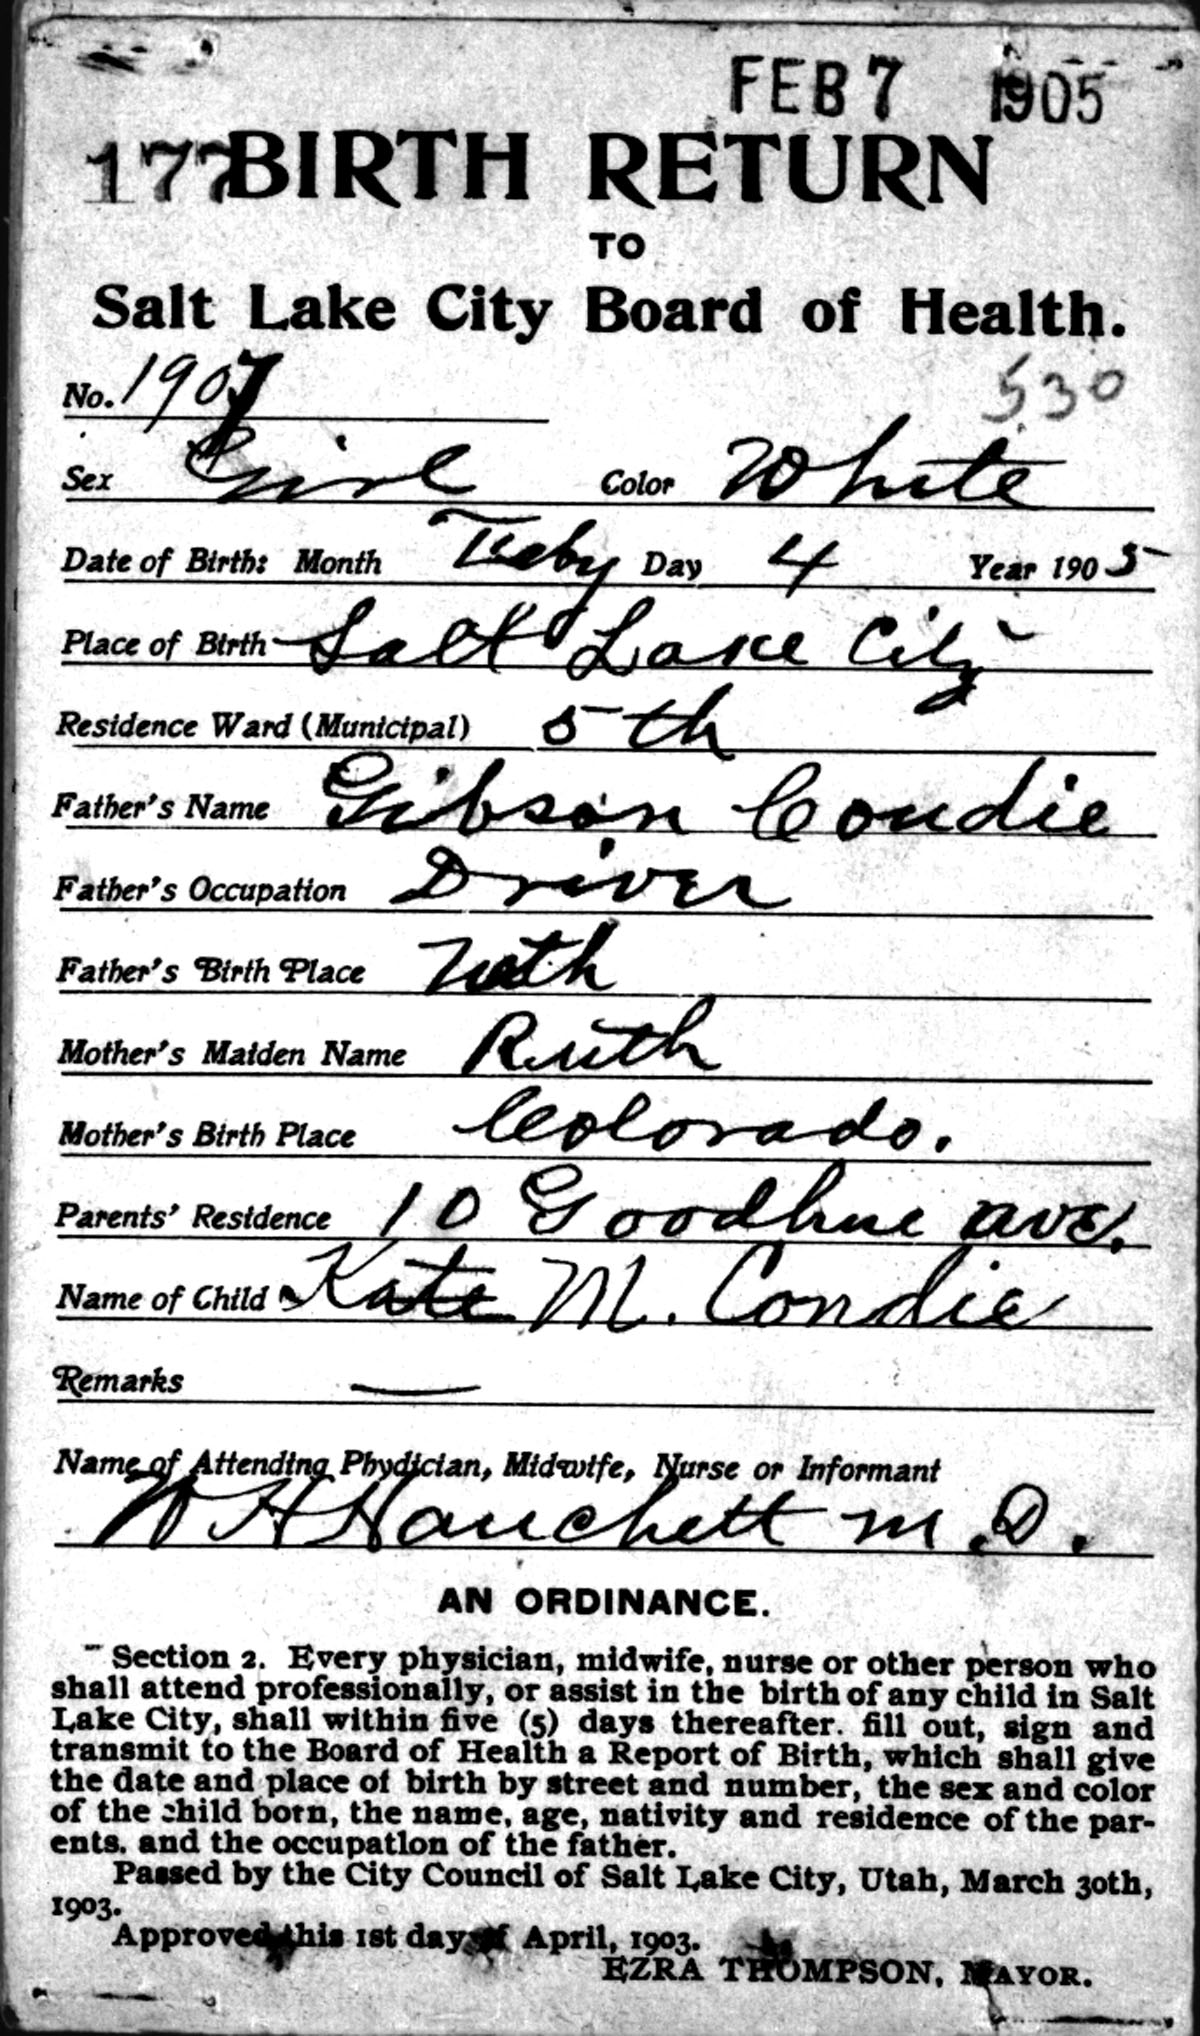 FEB 7 1905
177 BIRTH RETURN
TO
Salt Lake City Board of Health.
No. 1907 530
Sex Girl Color White
Date of Birth: Month Feby Day 4 Year 1905
Place of Birth Salt Lake City
Residence Ward (Municipal) 5th
Father's Name Gibson Condie
Father's Occupation Driver
Father's Birth Place Utah
Mother's Maiden Name Ruth
Mother's Birth Place Colorado.
Parents' Residence 10 Goodhue ave.
Name of Child Kate M. Condie
Remarks —
Name of Attending Phydician, Midwife, Nurse or Informant
W H Hanchett M.D.
AN ORDINANCE.
Section 2. Every physician, midwife, nurse or other person who
shall attend professionally, or assist in the birth of any child in Salt
Lake City, shall within five (5) days thereafter. fill out, sign and
transmit to the Board of Health a Report of Birth, which shall give
the date and place of birth by street and number, the sex and color
of the child born, the name, age, nativity and residence of the par-
ents. and the occupation of the father.
Passed by the City Council of Salt Lake City, Utah, March 30th,
1903.
Approved this 1st day of April, 1903.
EZRA THOMPSON, MAYOR.